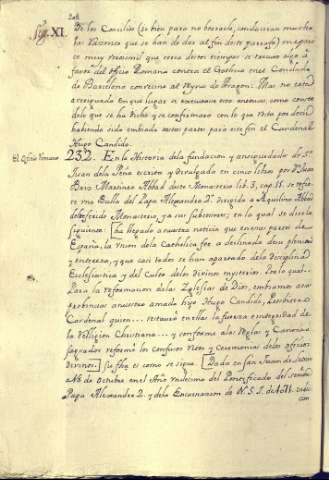 208
Sig. XI.
De los Concilios (se han para no borrarlo, conducirian mucho
las Vitorico que se han de dar al fin deste parrafo) me pare
ce muy verosimil que cerca destos tiempos se tomase algo a
favor del oficio Romano contra el Gothico en el Condado
de Barcelona contiguo al Reyno de Aragon. Mas no esta
averiguado en que lugar se executava esto menos como conste
delo que se ha dicho y se confirmara con lo que resta por decir
habiendo sido embiado a estas partes para este fin el Cardenal
Hugo Candido.
El Oficio Romano
232. En la Historia dela fundacion y antiguedades de Sn
Juan dela Peña escrita y divulgada en cinco libros por Dn Juan
Briz Martinez Abbad deste Monasterio lib. 3. cap. 18. se refie
re una Bulla del Papa Alexandro 2. dirigida a Aquilino Abbad
del referido Monasterio, ya sus subcesores; en la qual se dice lo
siguiente: [ha llegado a nuestra noticia que en unas partes de
España, la union dela Catholica fee a declinado dela plenitud
y entereza, y que casi todos se han apartado dela disciplina
Ecclesiastica y del Culto delos divinos mysterios. Por lo qual...
Para la reformacion delas Iglesias de Dios, embiamos a es
tas Provincias a nuestro amado hijo Hugo Candido, Presbitero
Cardenal quien... restauró en ellas la fuerza e integridad de
la Religion Christiana... y conforme alas Reglas y Canones
sagrados reformó los confusos Ritos y ceremonias delos oficios
divinos.] Su fha es como se sigue. [Dada en San Juan de Letran
a 18. de Octubre en el Año undecimo del Pontificado del señor
Papa Alexandro 2. y dela Encarnacion de N. S. J. de 1071. Indic
cion